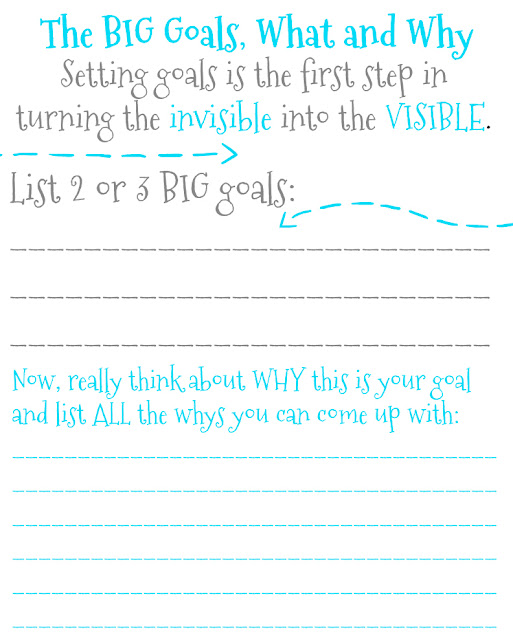 The BIG Goals, What and Why
Setting goals is the first step in
turning the invisible into the VISIBLE.
List 2 or 3 BIG goals:
Now, really think about WHY this is your goal
and list ALL the whys you can come up with: